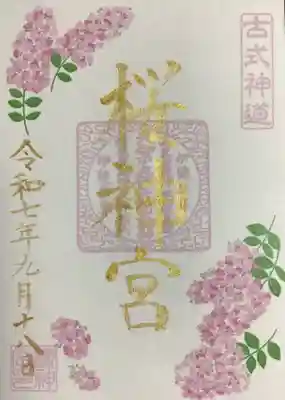 古式神道
桜神宮
令和七年九月十八日